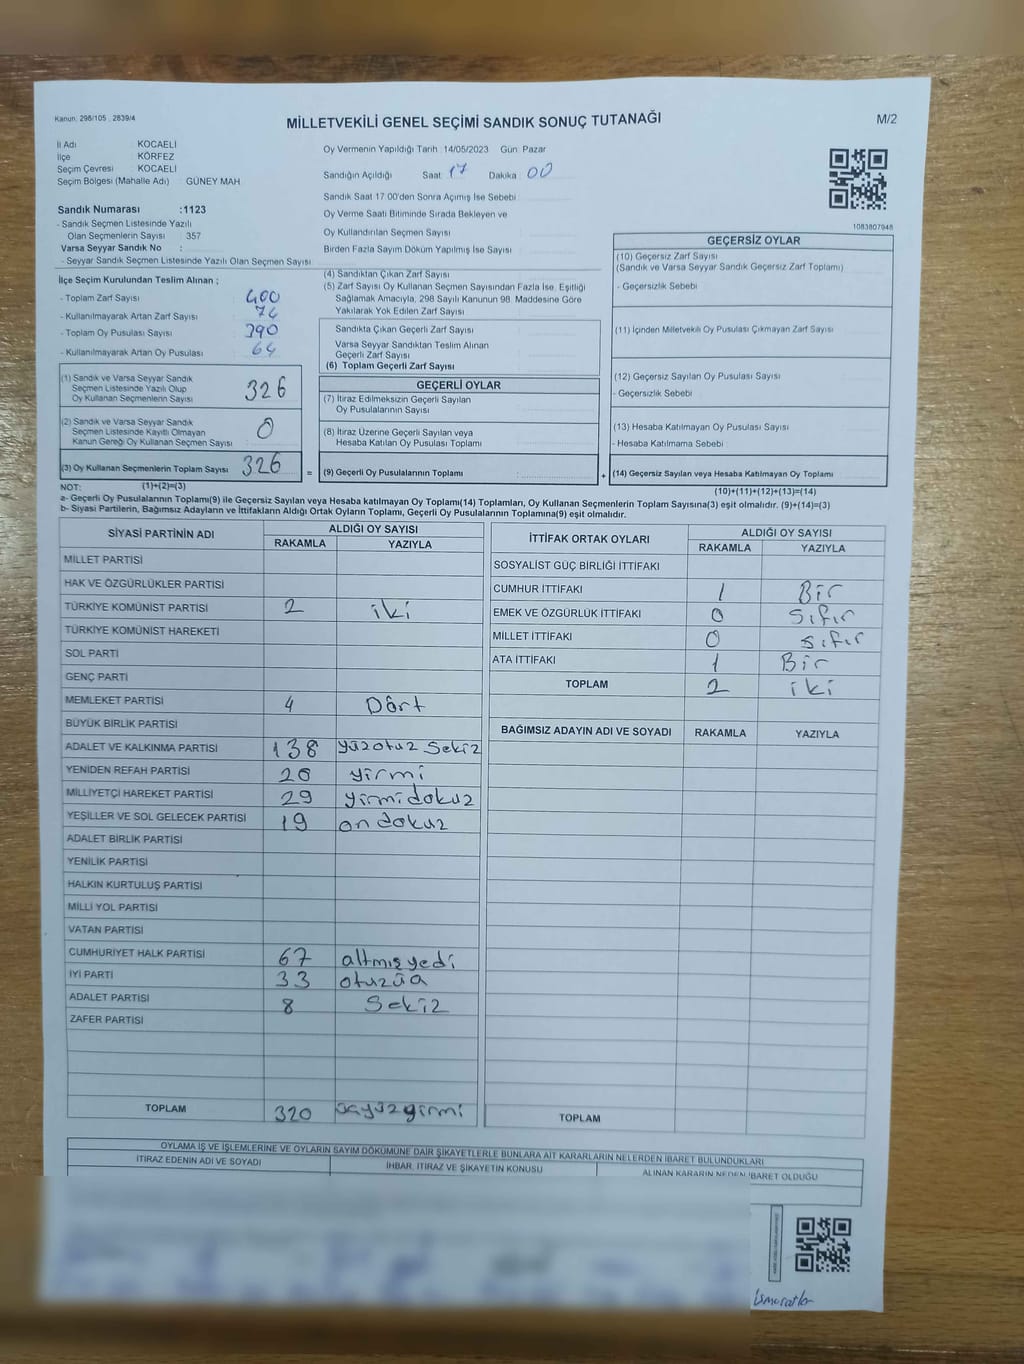 Kanun: 298/105 , 2839/4
MİLLETVEKİLİ GENEL SEÇİMİ SANDIK SONUÇ TUTANAĞI
M/2
İl Adı KOCAELİ
İlçe KÖRFEZ
Seçim Çevresi KOCAELİ
Seçim Bölgesi (Mahalle Adı) GÜNEY MAH
Sandık Numarası :1123
- Sandık Seçmen Listesinde Yazılı
Olan Seçmenlerin Sayısı 357
Varsa Seyyar Sandık No :
- Seyyar Sandık Seçmen Listesinde Yazılı Olan Seçmen Sayısı
Oy Vermenin Yapıldığı Tarih 14/05/2023 Gün: Pazar
Sandığın Açıldığı Saat 17 Dakika 00
Sandık Saat 17 00'den Sonra Açımış İse Sebebi
Oy Verme Saati Bitiminde Sırada Bekleyen ve
Oy Kullandırılan Seçmen Sayısı
Birden Fazla Sayım Döküm Yapılmış İse Sayısı
1083807948
İlçe Seçim Kurulundan Teslim Alınan ;
- Toplam Zarf Sayısı 400
- Kullanılmayarak Artan Zarf Sayısı 74
- Toplam Oy Pusulası Sayısı 390
- Kullanılmayarak Artan Oy Pusulası 64
(1) Sandık ve Varsa Seyyar Sandık
Seçmen Listesinde Yazılı Olup
Oy Kullanan Seçmenlerin Sayısı 326
(2) Sandık ve Varsa Seyyar Sandık
Seçmen Listesinde Kayıtlı Olmayan
Kanun Gereği Oy Kullanan Seçmen Sayısı 0
(3) Oy Kullanan Seçmenlerin Toplam Sayısı 326
(4) Sandıktan Çıkan Zarf Sayısı
(5) Zarf Sayısı Oy Kullanan Seçmen Sayısından Fazla İse, Eşitliği
Sağlamak Amacıyla, 298 Sayılı Kanunun 98. Maddesine Göre
Yakılarak Yok Edilen Zarf Sayısı
Sandıkta Çıkan Geçerli Zarf Sayısı
Varsa Seyyar Sandıktan Teslim Alınan
Geçerli Zarf Sayısı
(6) Toplam Geçerli Zarf Sayısı
GEÇERLİ OYLAR
(7) İtiraz Edilmeksizin Geçerli Sayılan
Oy Pusulalarının Sayısı
(8) İtiraz Üzerine Geçerli Sayılan veya
Hesaba Katılan Oy Pusulası Toplamı
= (9) Geçerli Oy Pusulalarının Toplamı
GEÇERSİZ OYLAR
(10) Geçersiz Zarf Sayısı
(Sandık ve Varsa Seyyar Sandık Geçersiz Zarf Toplamı)
- Geçersizlik Sebebi
(11) İçinden Milletvekili Oy Pusulası Çıkmayan Zarf Sayısı
(12) Geçersiz Sayılan Oy Pusulası Sayısı
- Geçersizlik Sebebi
(13) Hesaba Katılmayan Oy Pusulası Sayısı
- Hesaba Katılmama Sebebi
+ (14) Geçersiz Sayılan veya Hesaba Katılmayan Oy Toplamı
NOT: (1)+(2)=(3)
(10)+(11)+(12)+(13)=(14)
a- Geçerli Oy Pusulalarının Toplamı(9) ile Geçersiz Sayılan veya Hesaba katılmayan Oy Toplamı(14) Toplamları, Oy Kullanan Seçmenlerin Toplam Sayısına(3) eşit olmalıdır. (9)+(14)=(3)
b- Siyasi Partilerin, Bağımsız Adayların ve İttifakların Aldığı Ortak Oyların Toplamı, Geçerli Oy Pusulalarının Toplamına(9) eşit olmalıdır.
SİYASİ PARTİNİN ADI ALDIĞI OY SAYISI
RAKAMLA YAZIYLA
MİLLET PARTİSİ
HAK VE ÖZGÜRLÜKLER PARTİSİ
TÜRKİYE KOMÜNİST PARTİSİ 2 iki
TÜRKİYE KOMÜNİST HAREKETİ
SOL PARTİ
GENÇ PARTİ
MEMLEKET PARTİSİ 4 Dört
BÜYÜK BİRLİK PARTİSİ
ADALET VE KALKINMA PARTİSİ 138 yüzotuz Sekiz
YENİDEN REFAH PARTİSİ 20 yirmi
MİLLİYETÇİ HAREKET PARTİSİ 29 yirmidokuz
YEŞİLLER VE SOL GELECEK PARTİSİ 19 ondokuz
ADALET BİRLİK PARTİSİ
YENİLİK PARTİSİ
HALKIN KURTULUŞ PARTİSİ
MİLLİ YOL PARTİSİ
VATAN PARTİSİ
CUMHURİYET HALK PARTİSİ 67 altmışyedi
İYİ PARTİ 33 otuzüç
ADALET PARTİSİ 8 Sekiz
ZAFER PARTİSİ
TOPLAM 320 üçyüzyirmi
İTTİFAK ORTAK OYLARI ALDIĞI OY SAYISI
RAKAMLA YAZIYLA
SOSYALİST GÜÇ BİRLİĞİ İTTİFAKI
CUMHUR İTTİFAKI 1 Bir
EMEK VE ÖZGÜRLÜK İTTİFAKI 0 Sıfır
MİLLET İTTİFAKI 0 sıfır
ATA İTTİFAKI 1 Bir
TOPLAM 2 iki
BAĞIMSIZ ADAYIN ADI VE SOYADI RAKAMLA YAZIYLA
TOPLAM
OYLAMA İŞ VE İŞLEMLERİNE VE OYLARIN SAYIM DÖKÜMÜNE DAİR ŞİKAYETLERLE BUNLARA AİT KARARLARIN NELERDEN İBARET BULUNDUKLARI
İTİRAZ EDENİN ADI VE SOYADI İHBAR, İTİRAZ VE ŞİKAYETİN KONUSU ALINAN KARARIN NEDEN İBARET OLDUĞU